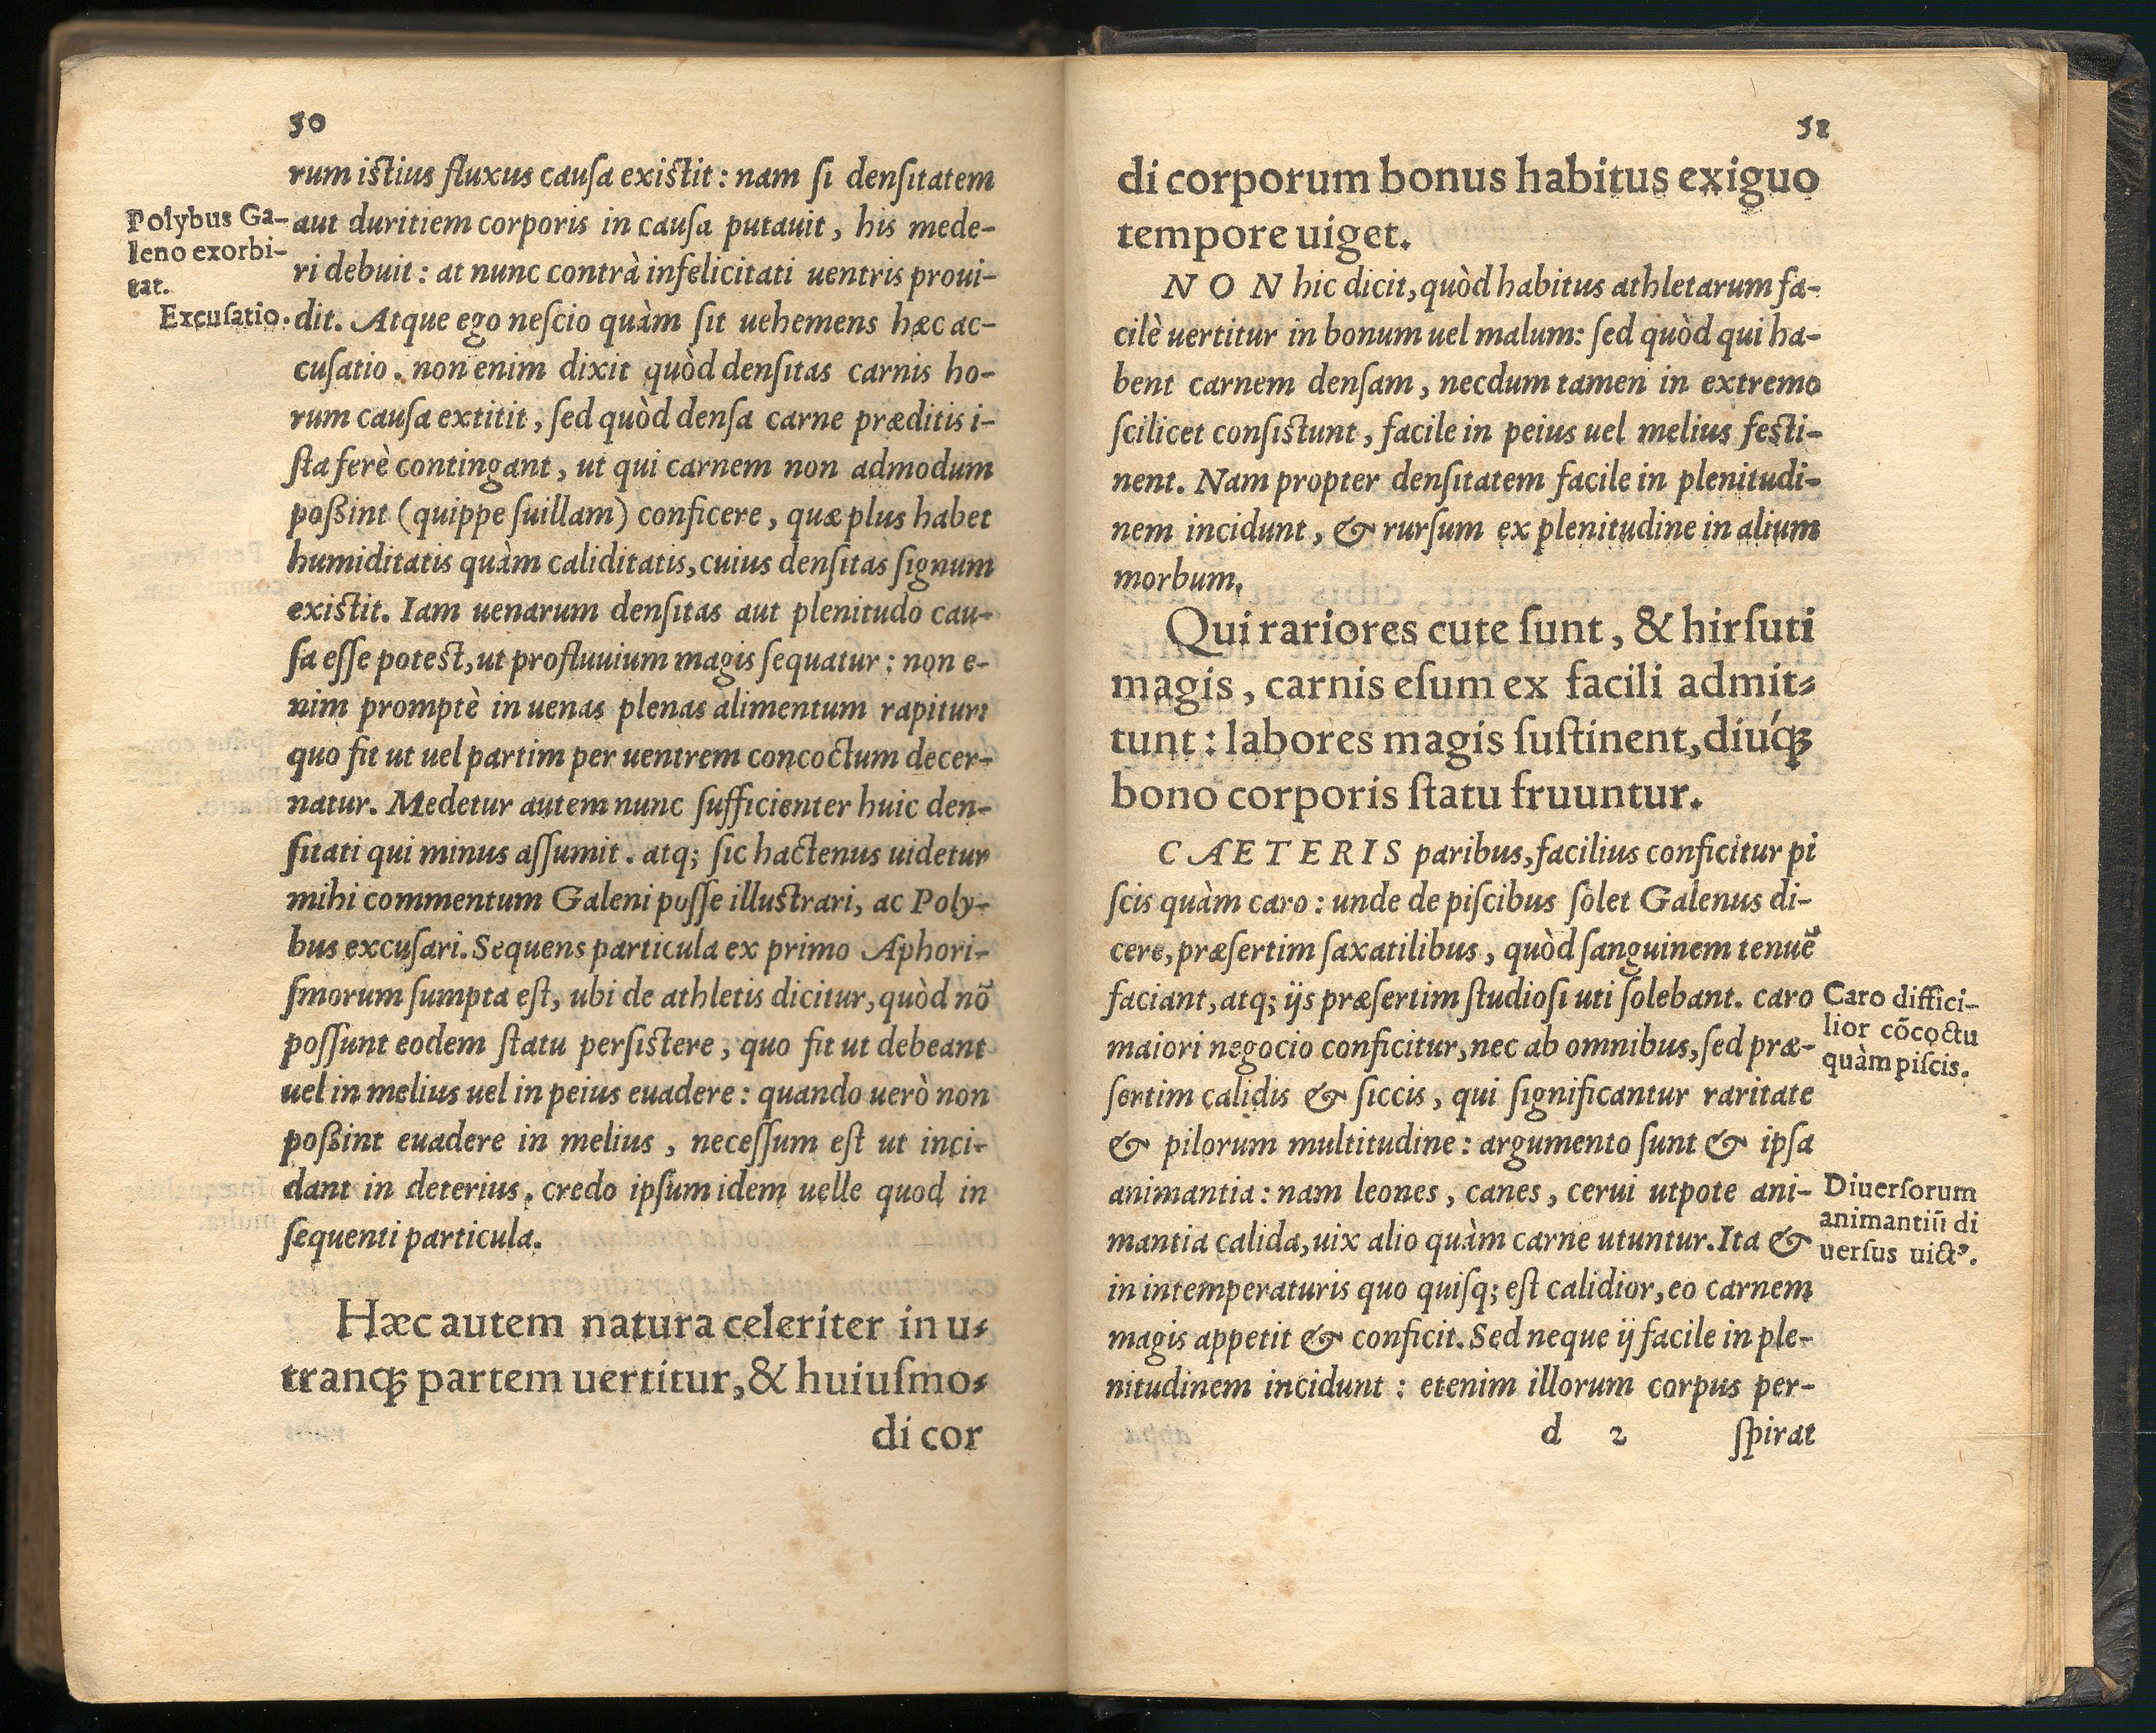 50
rum istius fluxus causa existit: nam si densitatem
Polybus Ga-
leno exorbi-
tat.
aut duritiem corporis in causa putauit, his mede-
ri debuit: at nunc contrà infelicitati uentris proui-
Excusatio.
dit. Atque ego nescio quàm sit uehemens hæc ac-
cusatio. non enim dixit quòd densitas carnis ho-
rum causa extitit, sed quòd densa carne præditis i-
sta ferè contingant, ut qui carnem non admodum
poßint (quippe suillam) conficere, quæ plus habet
humiditatis quàm caliditatis, cuius densitas signum
existit. Iam uenarum densitas aut plenitudo cau-
sa esse potest, ut profluuium magis sequatur: non e-
nim promptè in uenas plenas alimentum rapitur:
quo fit ut uel partim per uentrem concoctum decer-
natur. Medetur autem nunc sufficienter huic den-
sitati qui minus assumit. atq; sic hactenus uidetur
mihi commentum Galeni posse illustrari, ac Poly-
bus excusari. Sequens particula ex primo Aphori-
smorum sumpta est, ubi de athletis dicitur, quòd nõ
possunt eodem statu persistere, quo fit ut debeant
uel in melius uel in peius euadere: quando uerò non
poßint euadere in melius, necessum est ut inci-
dant in deterius. credo ipsum idem uelle quod in
sequenti particula.
Hæc autem natura celeriter in u-
tranq; partem uertitur, & huiusmo-
di cor
51
di corporum bonus habitus exiguo
tempore uiget.
NON hic dicit, quòd habitus athletarum fa-
cilè uertitur in bonum uel malum: sed quòd qui ha-
bent carnem densam, necdum tamen in extremo
scilicet consistunt, facile in peius uel melius festi-
nent. Nam propter densitatem facile in plenitudi-
nem incidunt, & rursum ex plenitudine in alium
morbum.
Qui rariores cute sunt, & hirsuti
magis, carnis esum ex facili admit-
tunt: labores magis sustinent, diúq;
bono corporis statu fruuntur.
CAETERIS paribus, facilius conficitur pi
scis quàm caro: unde de piscibus solet Galenus di-
cere, præsertim saxatilibus, quòd sanguinem tenuẽ
faciant, atq; ijs præsertim studiosi uti solebant. caro
Caro diffici-
lior cõcoctu
quàm piscis.
maiori negocio conficitur, nec ab omnibus, sed præ-
sertim calidis & siccis, qui significantur raritate
& pilorum multitudine: argumento sunt & ipsa
animantia: nam leones, canes, cerui utpote ani-
Diuersorum
animantiũ di
uersus uictꝰ.
mantia calida, uix alio quàm carne utuntur. Ita &
in intemperaturis quo quisq; est calidior, eo carnem
magis appetit & conficit. Sed neque ij facile in ple-
nitudinem incidunt: etenim illorum corpus per-
d 2 spirat